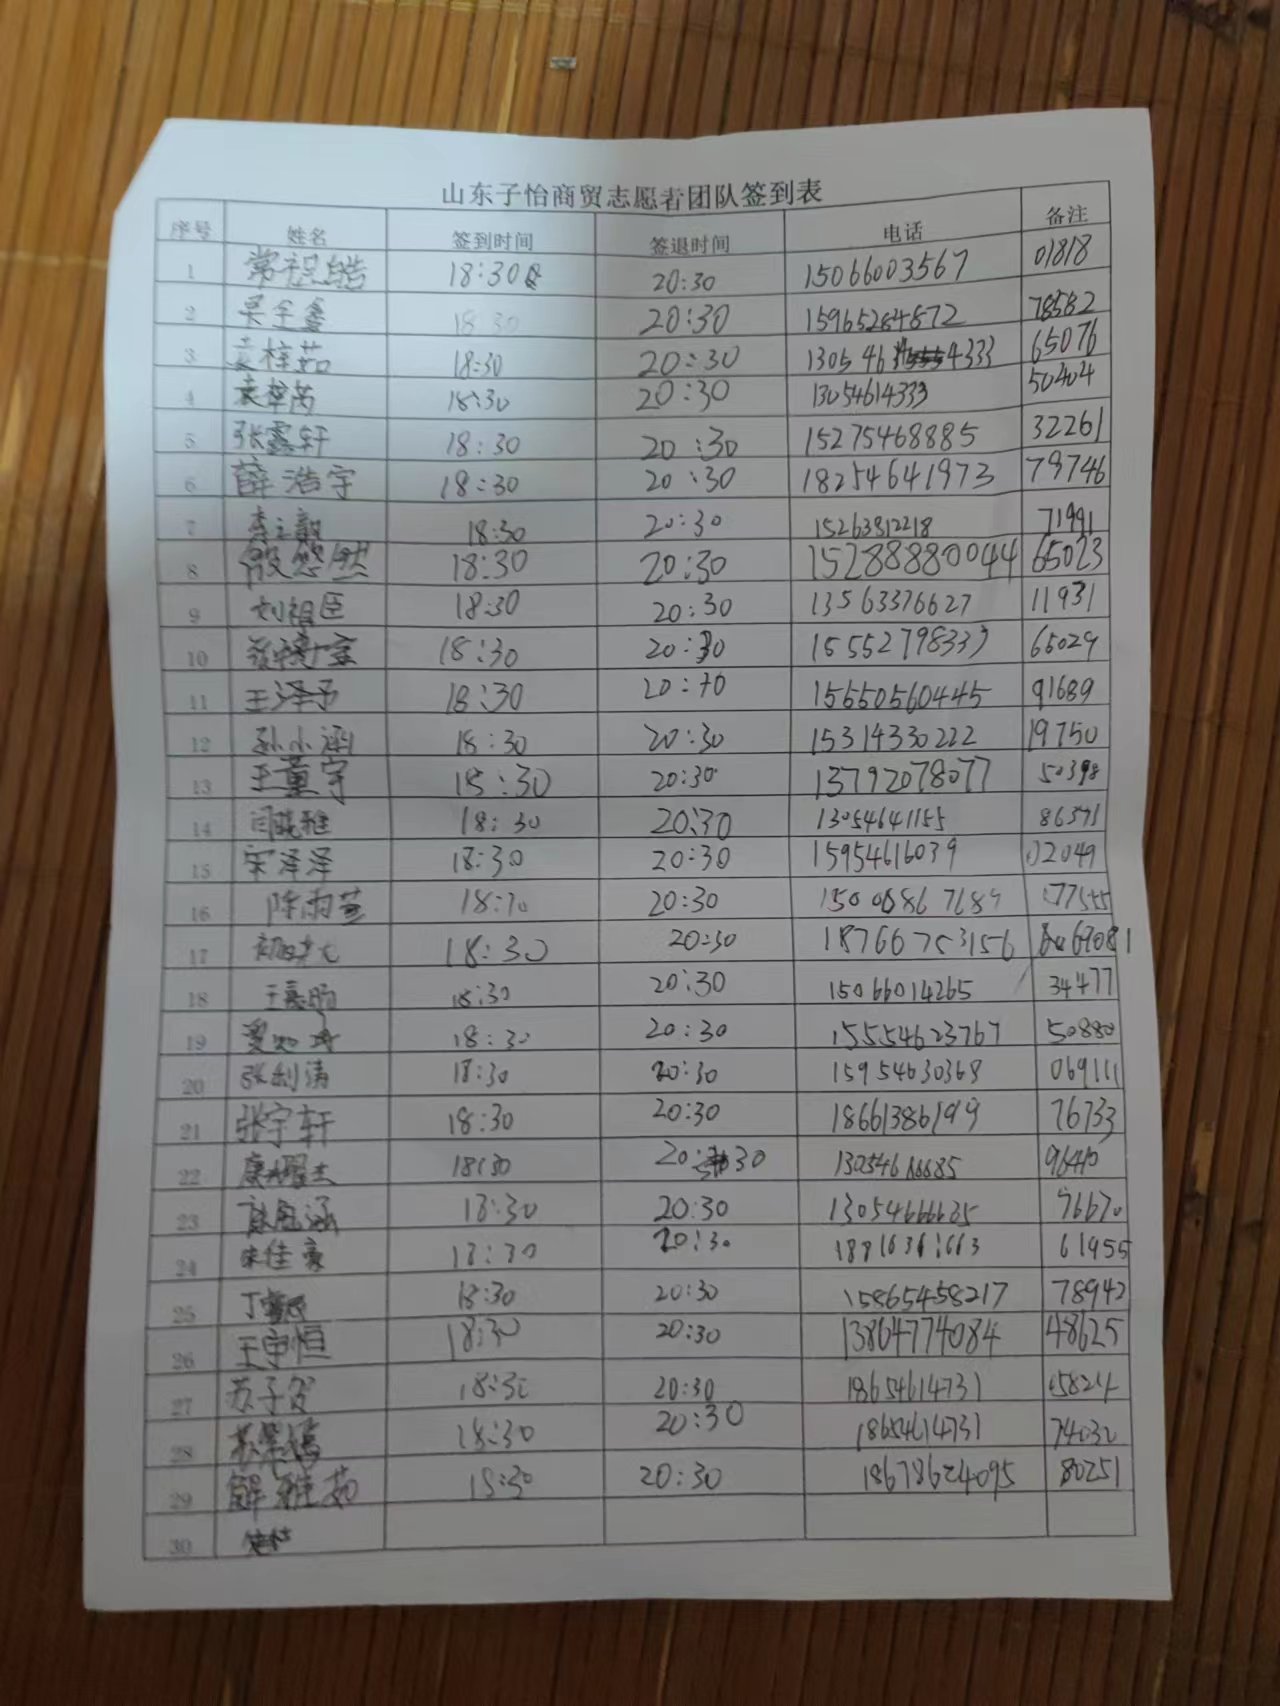 山东子怡商贸志愿者团队签到表
序号 姓名 签到时间 签退时间 电话 备注
1 常祖皓 18:30 20:30 15066003567 01818
2 吴金鑫 18:30 20:30 15965284872 78582
3 袁梓茹 18:30 20:30 1305463 4333 65076
4 袁梓芮 18:30 20:30 13054614333 50404
5 张鑫轩 18:30 20:30 15275468885 32261
6 薛浩宇 18:30 20:30 18254641973 79746
7 李之毅 18:30 20:30 15263812218 71991
8 殷悠然 18:30 20:30 15288880044 65023
9 刘祖臣 18:30 20:30 13563376627 11931
10 18:30 20:30 15552798333 65029
11 王泽予 18:30 20:70 15650560445 91689
12 孙小涵 18:30 20:30 15314330222 19750
13 王董宇 18:30 20:30 13792078077 50398
14 闫晓雅 18:30 20:30 13054641155 86371
15 宋泽泽 18:30 20:30 15954616039 02049
16 陈雨萱 18:30 20:30
17 18:30 20:30 18766753156 69081
18 18:30 20:30 15066014265 34477
19 18:30 20:30 15554623767 50880
20 张利涛 18:30 20:30 15954630368 069111
21 张宇轩 18:30 20:30 18661386199 76733
22 康耀杰 18:30 20:30 96410
23 18:30 20:30 13054666685 76670
24 朱佳豪 18:30 20:30 61955
25 丁 18:30 20:30 15865458217 78942
26 王宇恒 18:30 20:30 13864774084 48625
27 苏子贺 18:30 20:30 18654614731 15824
28 18:30 20:30 18654614731 74030
29 解雅茹 18:30 20:30 18678624095 80251
30